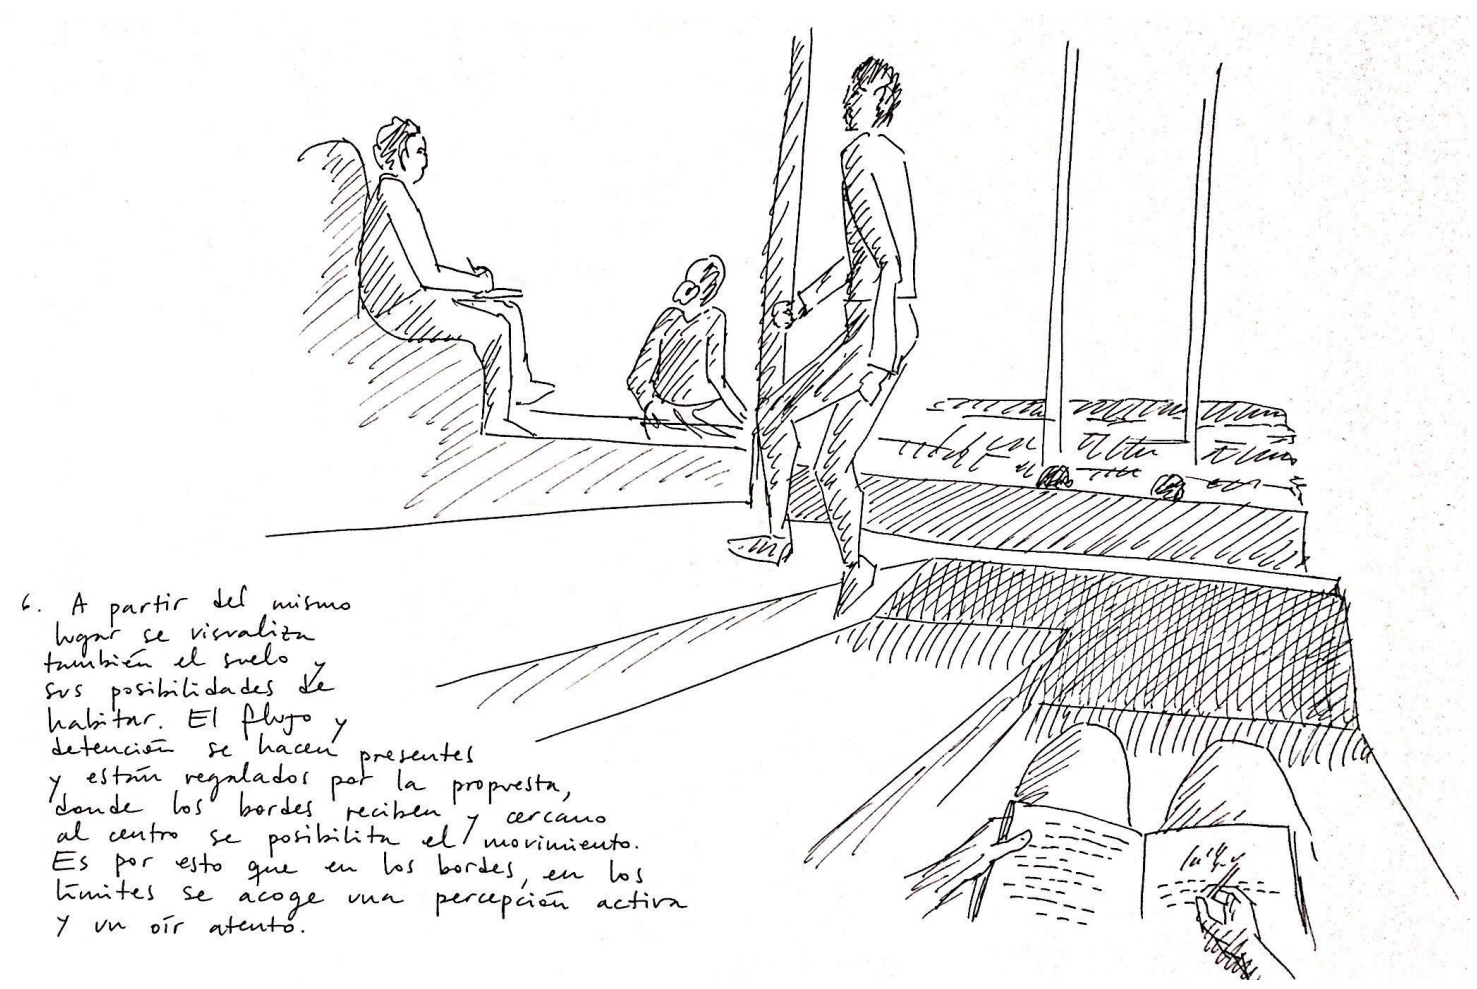 6. A partir del mismo
lugar se visualiza
también el suelo y
sus posibilidades de
habitar. El flujo y
detención se hacen presentes
y están regalados por la propuesta,
donde los bordes reciben y cercano
al centro se posibilita el movimiento.
Es por esto que en los bordes, en los
límites se acoge una percepción activa
y un oír atento.